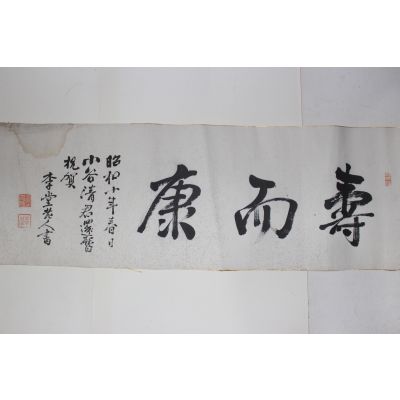 壽而康
昭和 年 日
小谷清君還曆
祝賀
李堂老人書